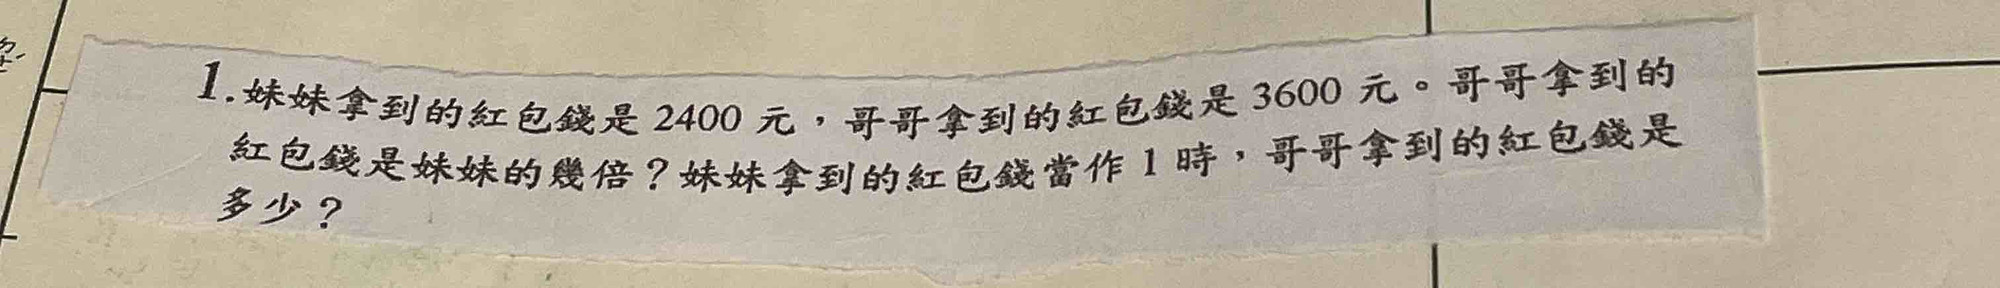 1.妹妹拿到的紅包錢是 2400 元，哥哥拿到的紅包錢是 3600 元。哥哥拿到的
紅包錢是妹妹的幾倍？妹妹拿到的紅包錢當作 1 時，哥哥拿到的紅包錢是
多少？